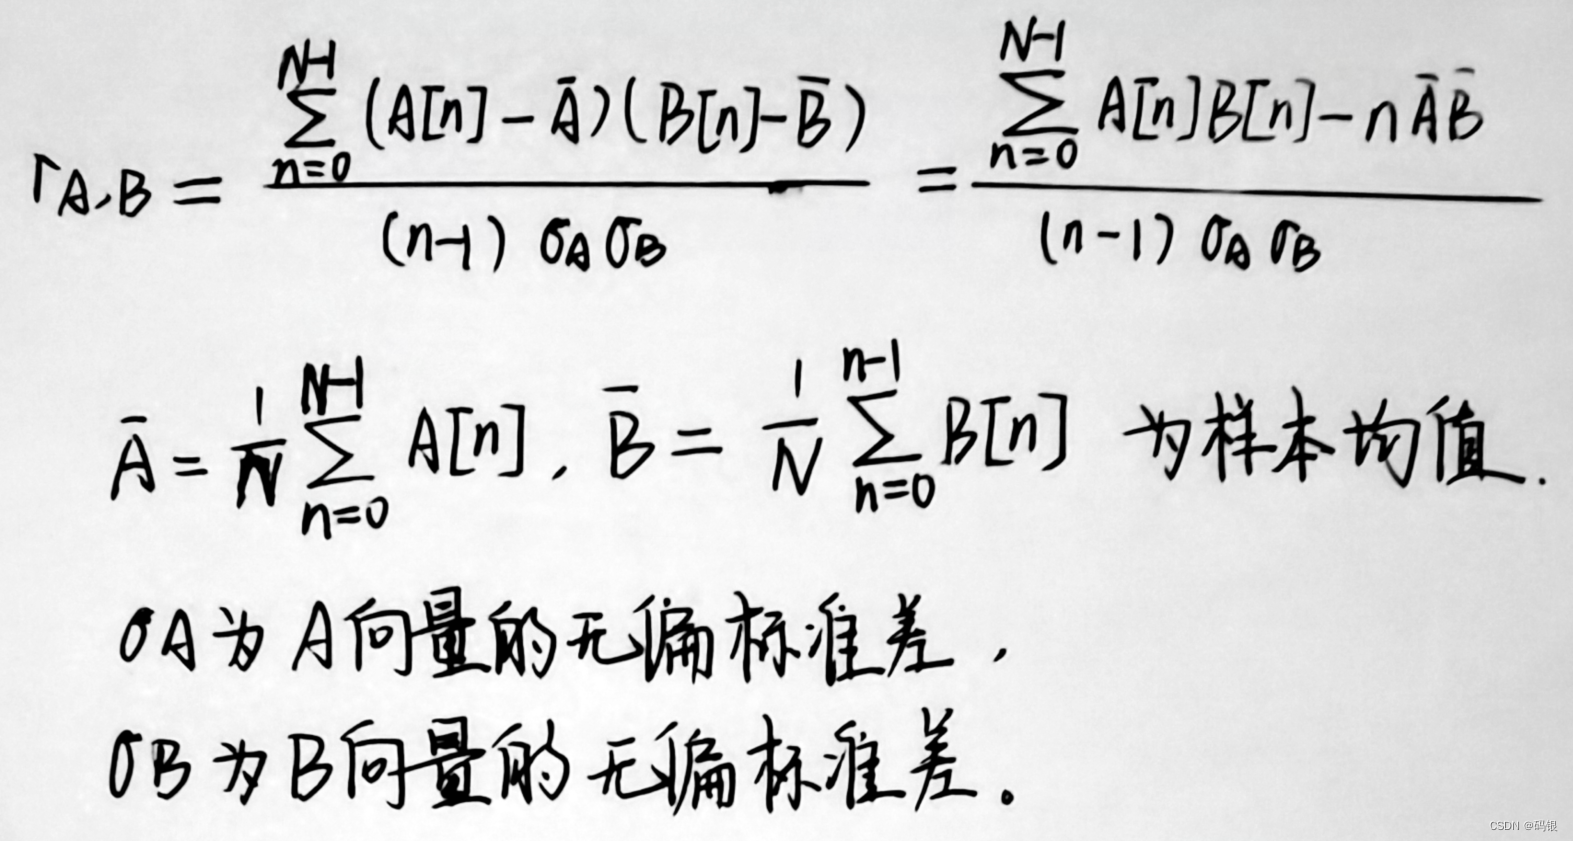 r_{A,B} = \frac{\sum_{n=0}^{N-1} (A[n] - \bar{A})(B[n] - \bar{B})}{(n-1) σ_A σ_B} = \frac{\sum_{n=0}^{N-1} A[n]B[n] - n\bar{A}\bar{B}}{(n-1) σ_A σ_B}
\bar{A} = \frac{1}{N} \sum_{n=0}^{N-1} A[n], \bar{B} = \frac{1}{N} \sum_{n=0}^{n-1} B[n] 为样本均值.
σA为A向量的无偏标准差,
σB为B向量的无偏标准差。
CSDN @码银